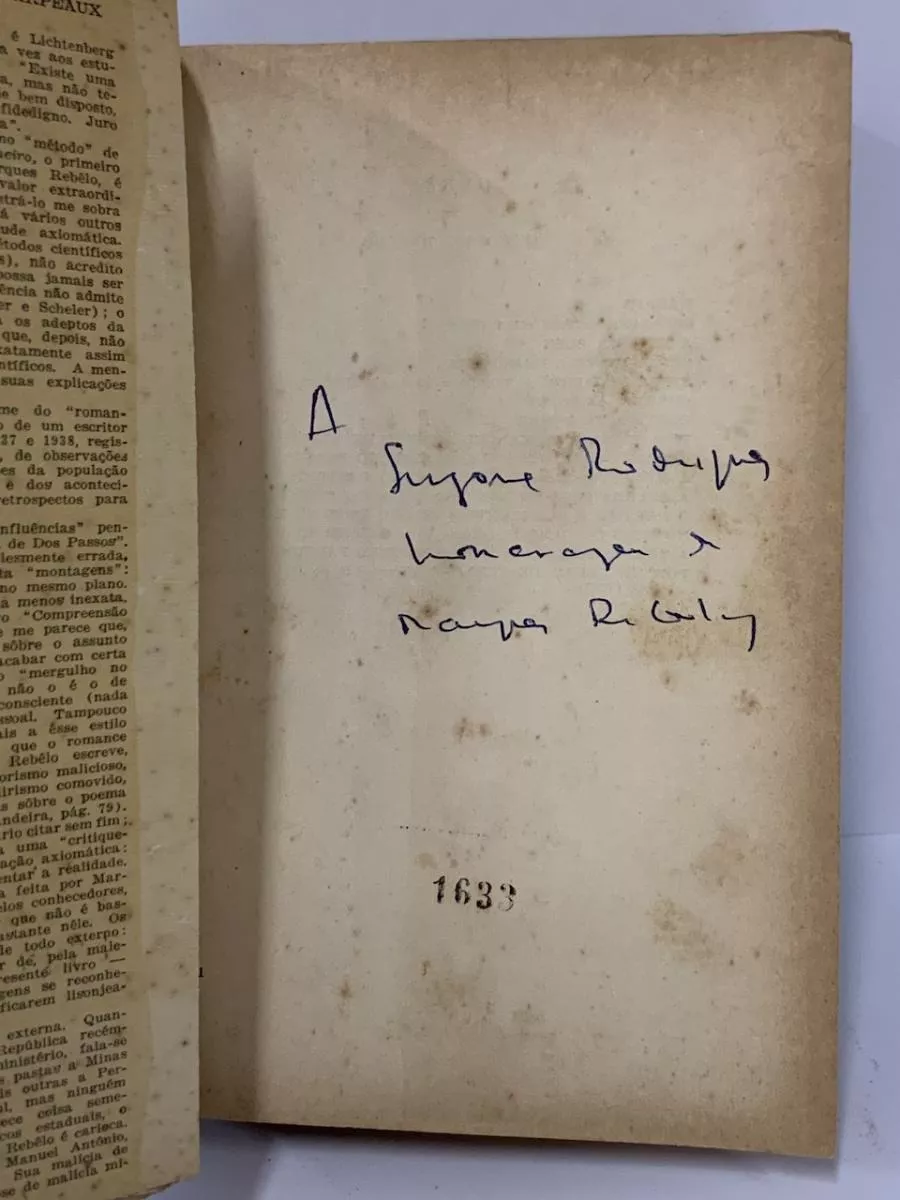 RPEAUX
é Lichtenberg
a vez aos estu-
"Existe uma
a, mas não te-
e bem disposto,
fidedigno. Juro
a".
no "método" de
neiro, o primeiro
rques Rebêlo, é
valor extraordi-
strá-lo me sobra
á vários outros
ude axiomática.
étodos científicos
s), não acredito
possa jamais ser
ência não admite
er e Scheler); o
a os adeptos da
que, depois, não
xatamente assim
ntíficos. A men-
suas explicações
me do "roman-
o de um escritor
37 e 1938, regis-
, de observações
es da população
e dos aconteci-
retrospectos para
nfluências" pen-
de Dos Passos".
lesmente errada,
da "montagens":
no mesmo plano.
a menos inexata,
ro "Compreensão
e me parece que,
sôbre o assunto
acabar com certa
o "mergulho no
não o é o de
consciente (nada
ssoal. Tampouco
ais a êsse estilo
que o romance
Rebêlo escreve,
orismo malicioso,
lirismo comovido,
s sôbre o poema
andeira, pág. 79).
rio citar sem fim;
a uma "critique-
ação axiomática:
entar a realidade.
a feita por Mar-
elos conhecedores,
que não é bas-
nstante nêle. Os
de todo externo:
r de, pela male-
resente livro —
gens se reconhe-
ficarem lisonjea-
externa. Quan-
República recém-
ministério, fala-se
s pastas a Minas
is outras a Per-
l, mas ninguém
ece coisa seme-
cos estaduais, o
Rebêlo é carioca.
Manuel Antônio,
Sua malícia de
se de malícia mi-
A
Suzana Rodrigues
homenagem de
Marques Rebelo
1633
1